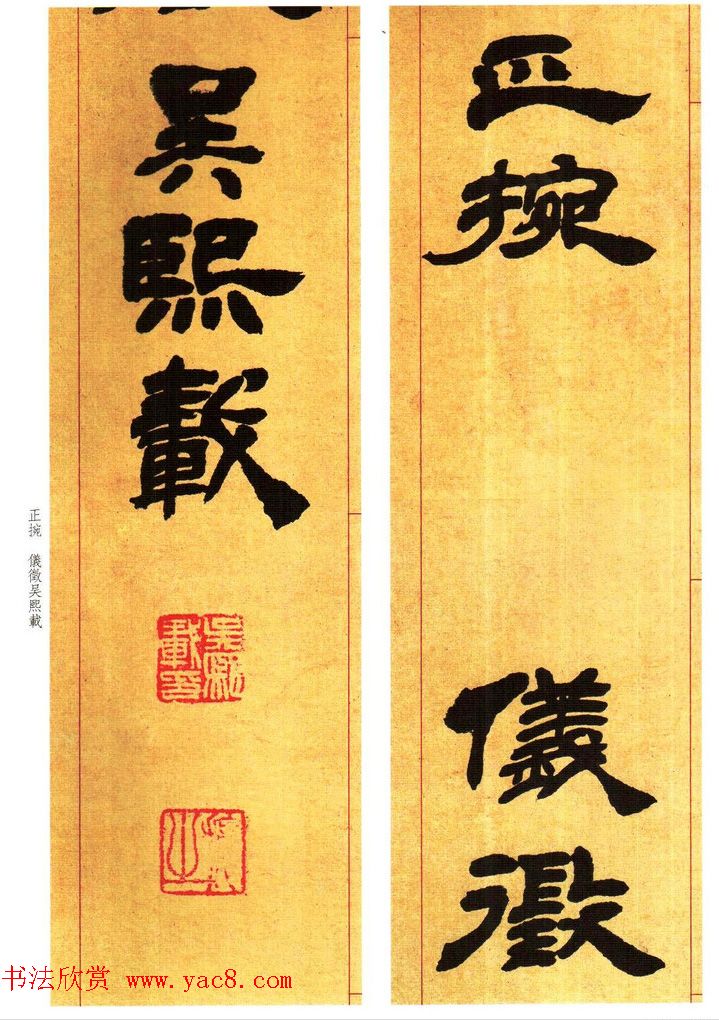 正捥
儀徵
吳熙載
吳熙載印
正捥　儀徵吳熙載
书法欣赏 www.yac8.com